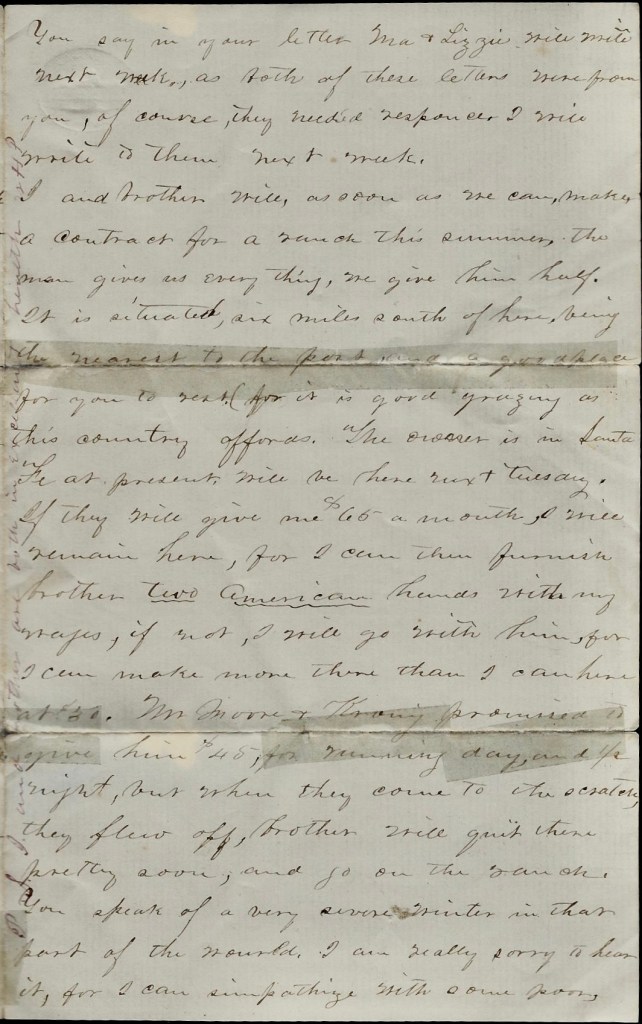 You say in your letter Ma & Lizzie will write
next week, as both of these letters were from
you, of course, they needed responces I will
write to them next week.
I and brother will, as soon as we can, make
a contract for a ranch this summer, the
man gives us everything, we give him half.
It is situated, six miles south of here, being
the nearest to the post and a good place
for you to rest, (for it is good grazing as
this country affords. The owner is in Santa
Fe at present, will be here next Tuesday.
If they will give me $65 a month, I will
remain here, for I can then furnish
brother two American hands with my
wages, if not, I will go with him, for
I can make more there than I can here
at $50. Mr Moore & Kronig promised to
give him $45, for running day, and 1/2
night, but when they come to the scratch,
they flew off, brother will quit there
pretty soon, and go on the ranch.
You speak of a very severe winter in that
part of the wourld. I am really sorry to hear
it, for I can simpathize with some poor,
P.S. I and brother are both in excellent health